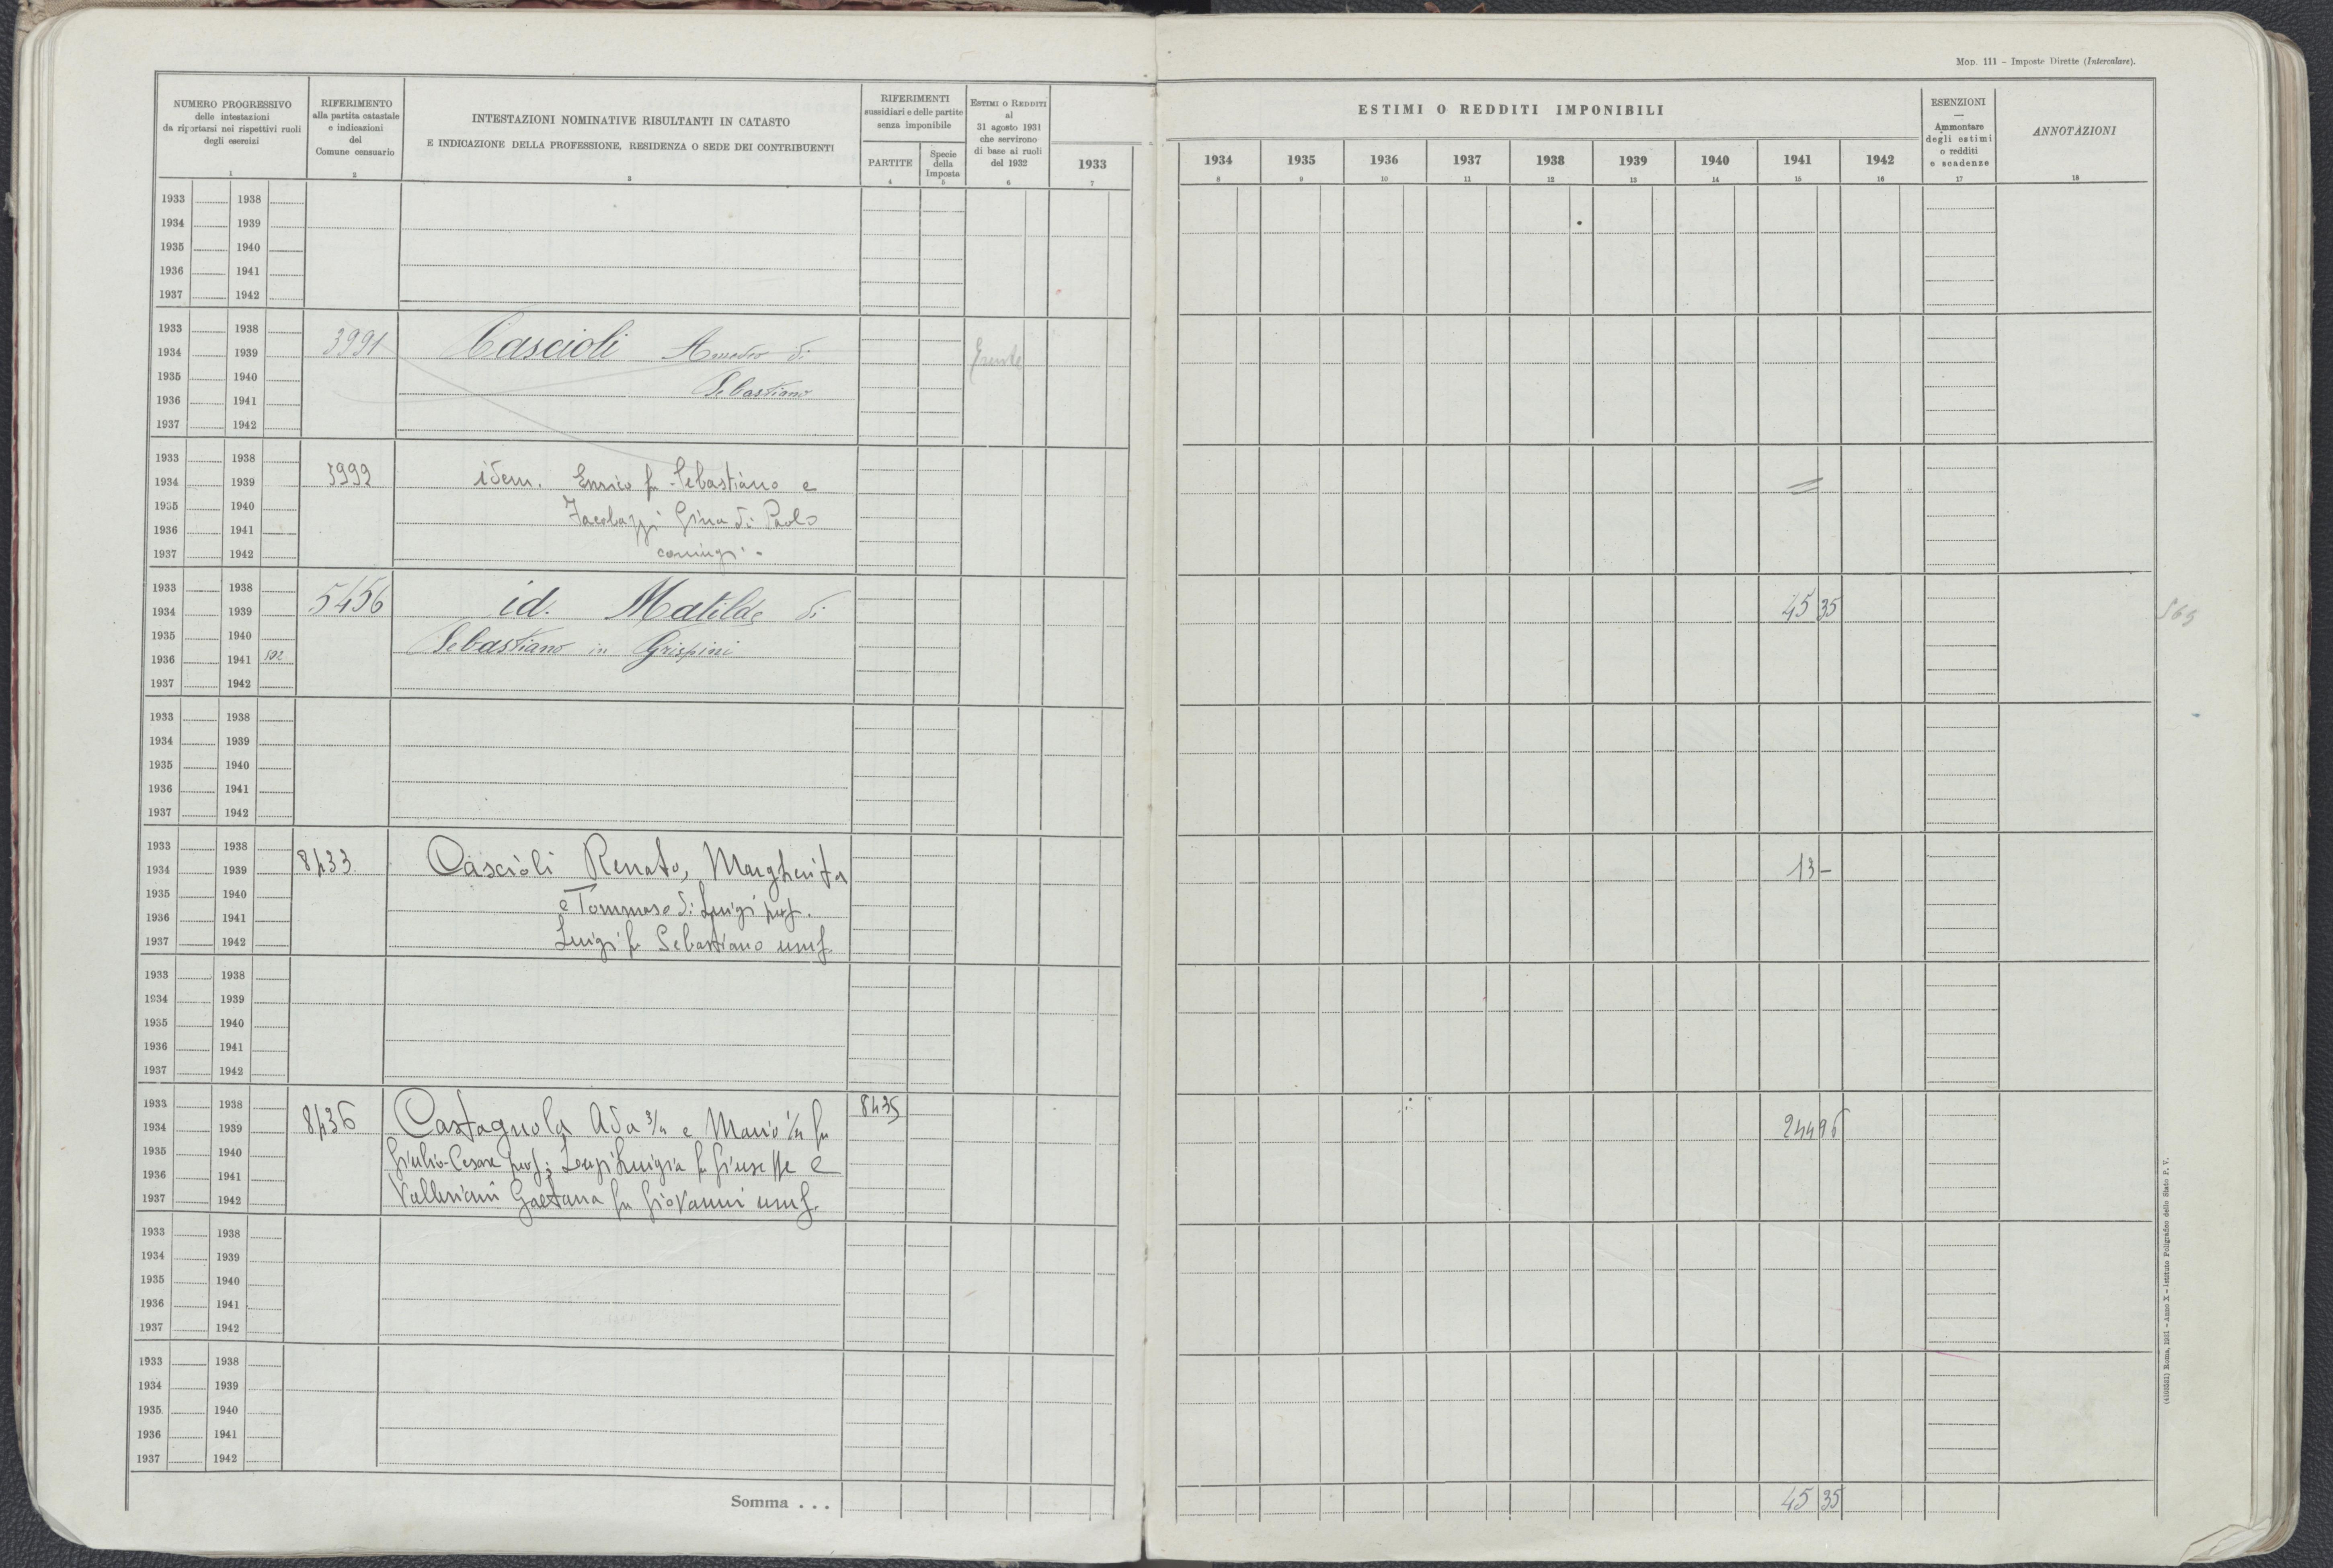 Mod. 111 - Imposte Dirette (Intercalare).
NUMERO PROGRESSIVO
delle intestazioni
da riportarsi nei rispettivi ruoli
degli esercizi
1
RIFERIMENTO
alla partita catastale
e indicazioni
del
Comune censuario
2
INTESTAZIONI NOMINATIVE RISULTANTI IN CATASTO
E INDICAZIONE DELLA PROFESSIONE, RESIDENZA O SEDE DEI CONTRIBUENTI
3
RIFERIMENTI
sussidiari e delle partite
senza imponibile
PARTITE
4
Specie
della
Imposta
5
Estimi o Redditi
al
31 agosto 1931
che servirono
di base ai ruoli
del 1932
6
1933
7
ESTIMI O REDDITI IMPONIBILI
1934 1935 1936 1937 1938 1939 1940 1941 1942
8 9 10 11 12 13 14 15 16
ESENZIONI
—
Ammontare
degli estimi
o redditi
e scadenze
17
ANNOTAZIONI
18
1933 1938
1934 1939
1935 1940
1936 1941
1937 1942
1933 1938
1934 1939 3991 Cascioli Amedeo di
1935 1940 Sebastiano
1936 1941
1937 1942
1933 1938
1934 1939 3992 idem. Enrico fu Sebastiano e
1935 1940 Jacobazzi Gina di Paolo
1936 1941 coniugi.
1937 1942
1933 1938
1934 1939 5456 id. Matilde di 45 35
1935 1940 Sebastiano in Grispini
1936 1941 592
1937 1942
1933 1938
1934 1939
1935 1940
1936 1941
1937 1942
1933 1938
1934 1939 8433 Cascioli Renato, Margherita 13 -
1935 1940 e Tommaso di Luigi prop.
1936 1941 Luigi fu Sebastiano usuf.
1937 1942
1933 1938
1934 1939
1935 1940
1936 1941
1937 1942
1933 1938 8435
1934 1939 8436 Castagnola Ada 3/4 e Mario 1/4 fu 244 96
1935 1940 Giulio-Cesare prop; Luigia fu Giuseppe e
1936 1941 Valleriani Gaetana fu Giovanni usuf.
1937 1942
1933 1938
1934 1939
1935 1940
1936 1941
1937 1942
1933 1938
1934 1939
1935 1940
1936 1941
1937 1942
Somma . . . 45 35
565
(4103531) Roma, 1931 - Anno X - Istituto Poligrafico dello Stato P. V.